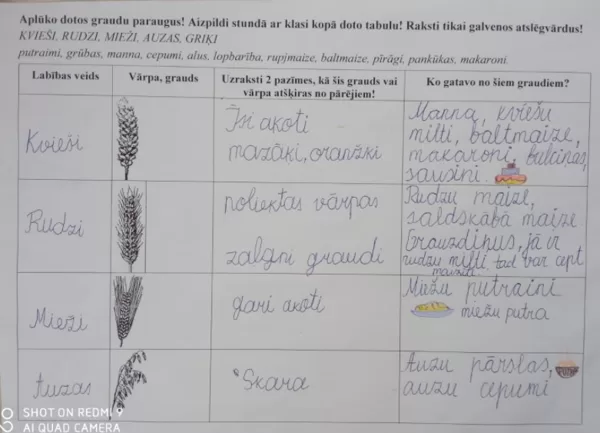 Aplūko dotos graudu paraugus! Aizpildi stundā ar klasi kopā doto tabulu! Raksti tikai galvenos atslēgvārdus!
KVIEŠI, RUDZI, MIEŽI, AUZAS, GRIĶI
putraimi, grūbas, manna, cepumi, alus, lopbarība, rupjmaize, baltmaize, pīrāgi, pankūkas, makaroni.
Labības veids
Vārpa, grauds
Uzraksti 2 pazīmes, kā šis grauds vai
vārpa atšķiras no pārējiem!
Ko gatavo no šiem graudiem?
Kvieši
Īsi akoti
mazāki, oranžki
Manna, kviešu
milti, baltmaize,
makaroni, bulciņas,
sausiņi.
Rudzi
noliektas vārpas
zaļgni graudi
Rudzu maize,
saldskābā maize
Grauzdiņus, jā ir
rudzu milti, tad var cept
maizīti.
Mieži
gari akoti
Miežu putraimi
miežu putra
Auzas
Skara
Auzu pārslas,
auzu cepumi
SHOT ON REDMI 9
AI QUAD CAMERA